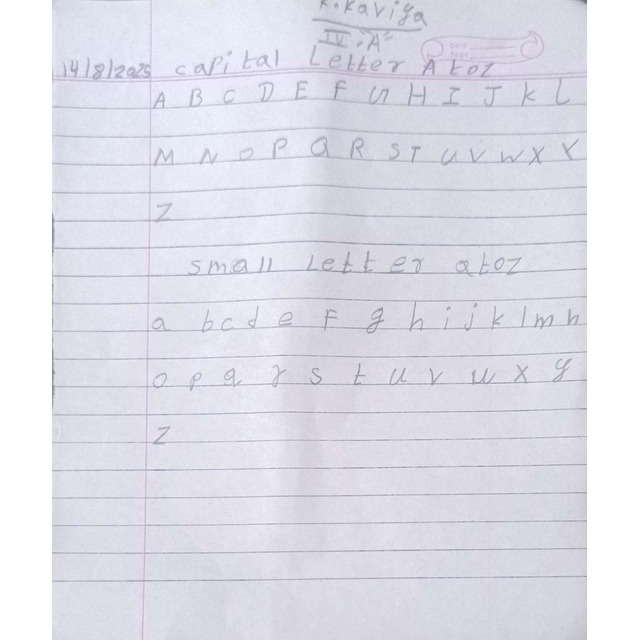 K. Kaviya
IV "A"
14/8/2025 capital Letter A to Z
A B C D E F G H I J K L
M N O P Q R S T U V W X Y
Z
small letter a to z
a b c d e F g h i j k l m n
o p q r s t u v w x y
z